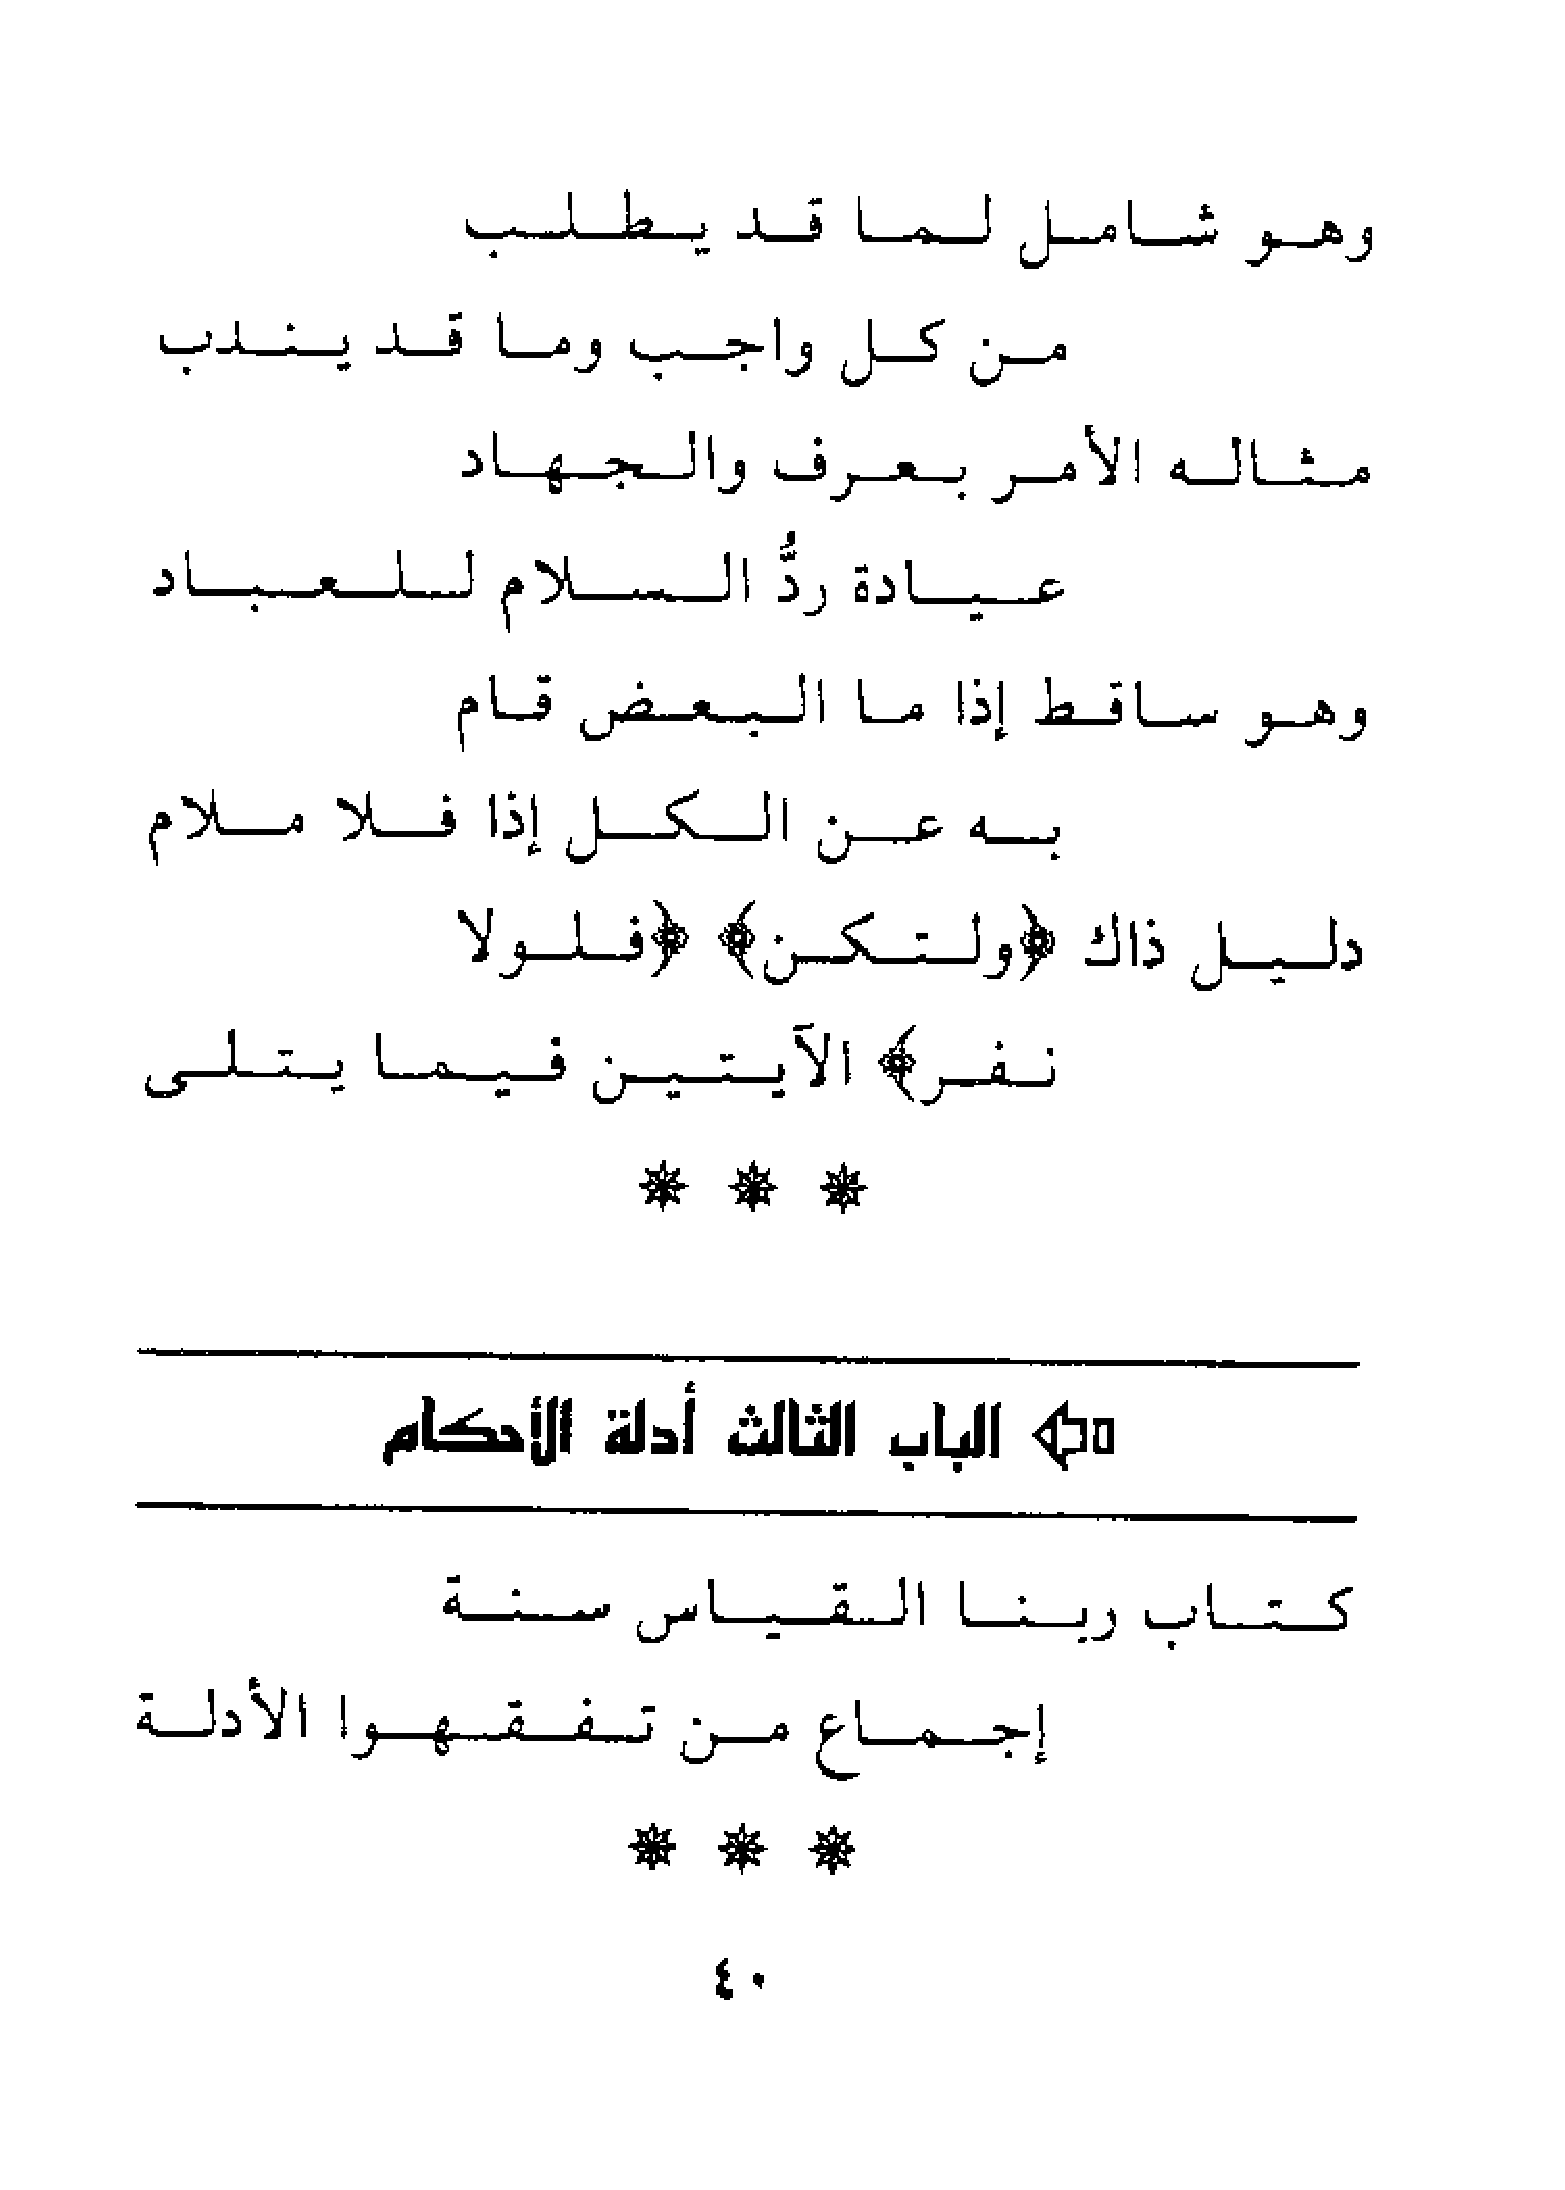 وهو شامل لما قد يطلب
من كل واجب وما قد يندب
مثاله الأمر بعرف والجهاد
عيادة ردُّ السلام للعباد
وهو ساقط إذا ما البعض قام
به عن الكل إذا فلا ملام
دليل ذاك ﴿ولتكن﴾ ﴿فلولا
نفر﴾ الآيتين فيما يتلى
الباب الثالث أدلة الأحكام
كتاب ربنا القياس سنة
إجماع من تفقهوا الأدلة
٤٠